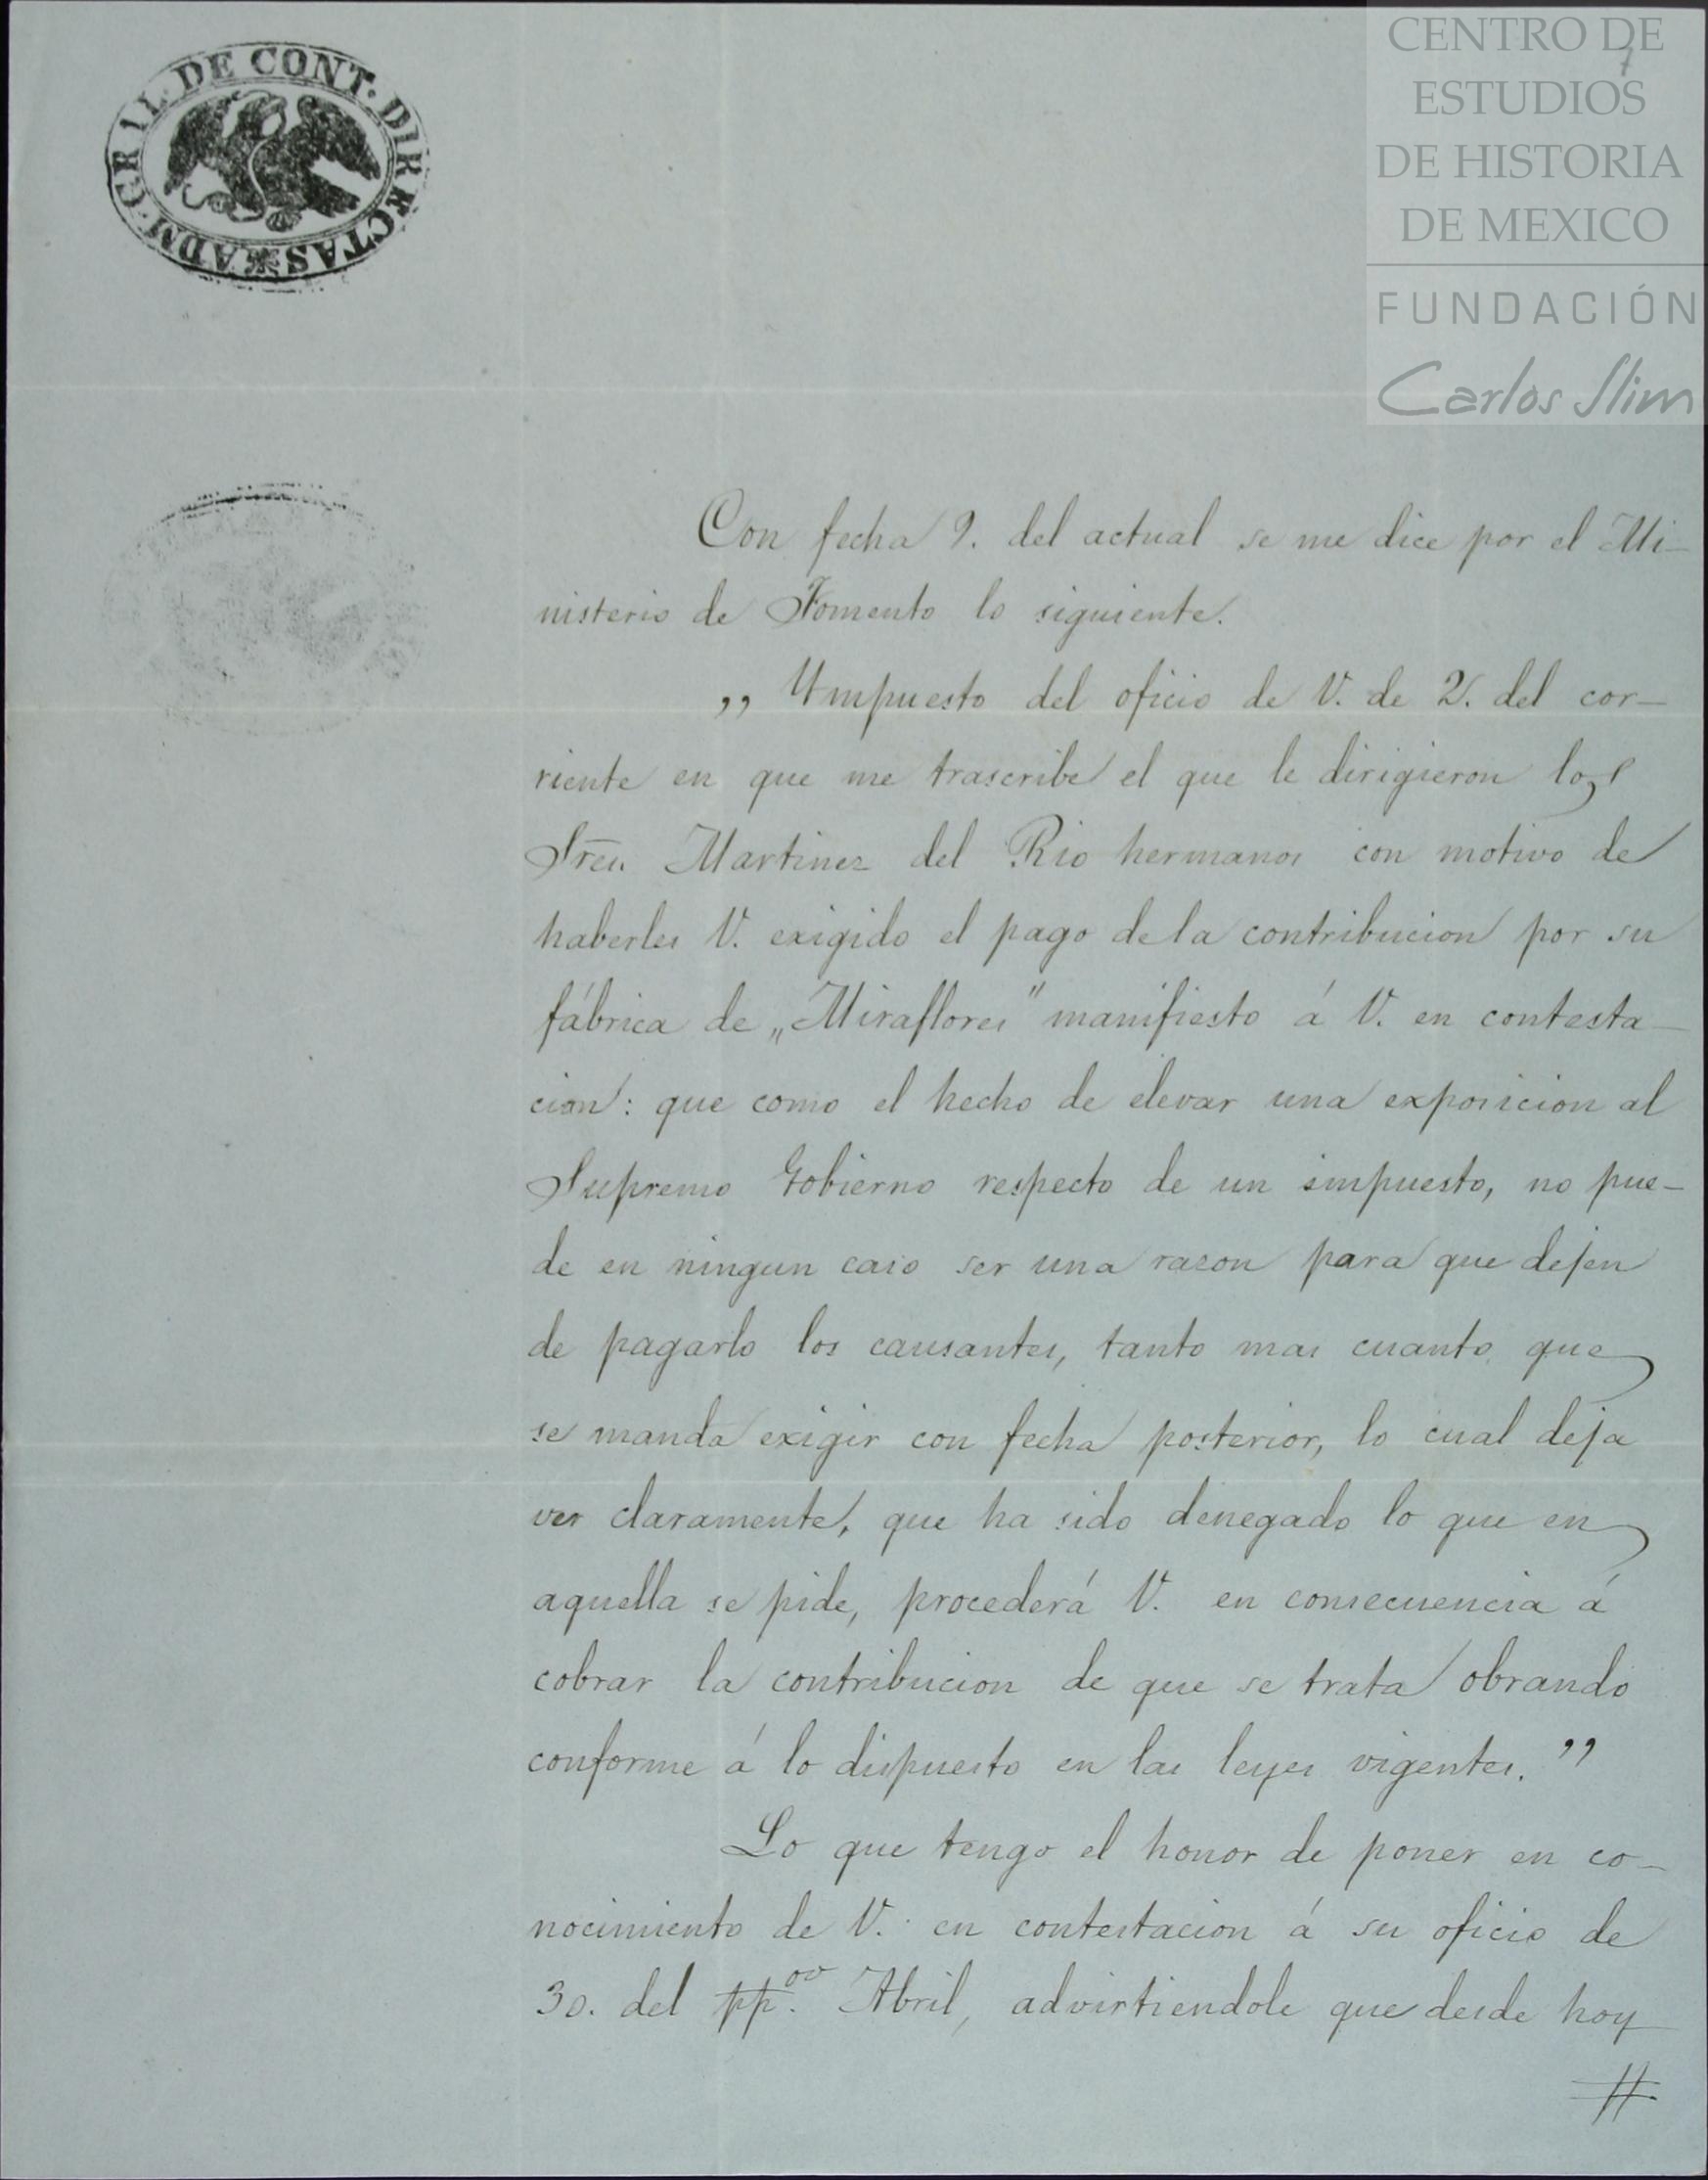 ADM. GRIAL. DE CONT. DIRECTAS
7
CENTRO DE
ESTUDIOS
DE HISTORIA
DE MEXICO
FUNDACIÓN
Carlos Slim
Con fecha 9. del actual se me dice por el Mi-
nisterio de Fomento lo siguiente.
,, Ympuesto del oficio de V. de 2. del cor-
riente en que me trascribe el que le dirigieron los
Sres. Martinez del Rio hermanos con motivo de
haberles V. exigido el pago de la contribucion por su
fábrica de „Miraflores" manifiesto á V. en contesta-
cion: que como el hecho de elevar una exposicion al
Supremo Gobierno respecto de un impuesto, no pue-
de en ningun caso ser una razon para que dejen
de pagarlo los causantes, tanto mas cuanto que
se manda exigir con fecha posterior, lo cual deja
ver claramente, que ha sido denegado lo que en
aquella se pide, procederá V. en consecuencia á
cobrar la contribucion de que se trata obrando
conforme á lo dispuesto en las leyes vigentes.”
Lo que tengo el honor de poner en co-
nocimiento de V. en contestacion á su oficio de
30. del pp.oo Abril, advirtiendole que desde hoy
#